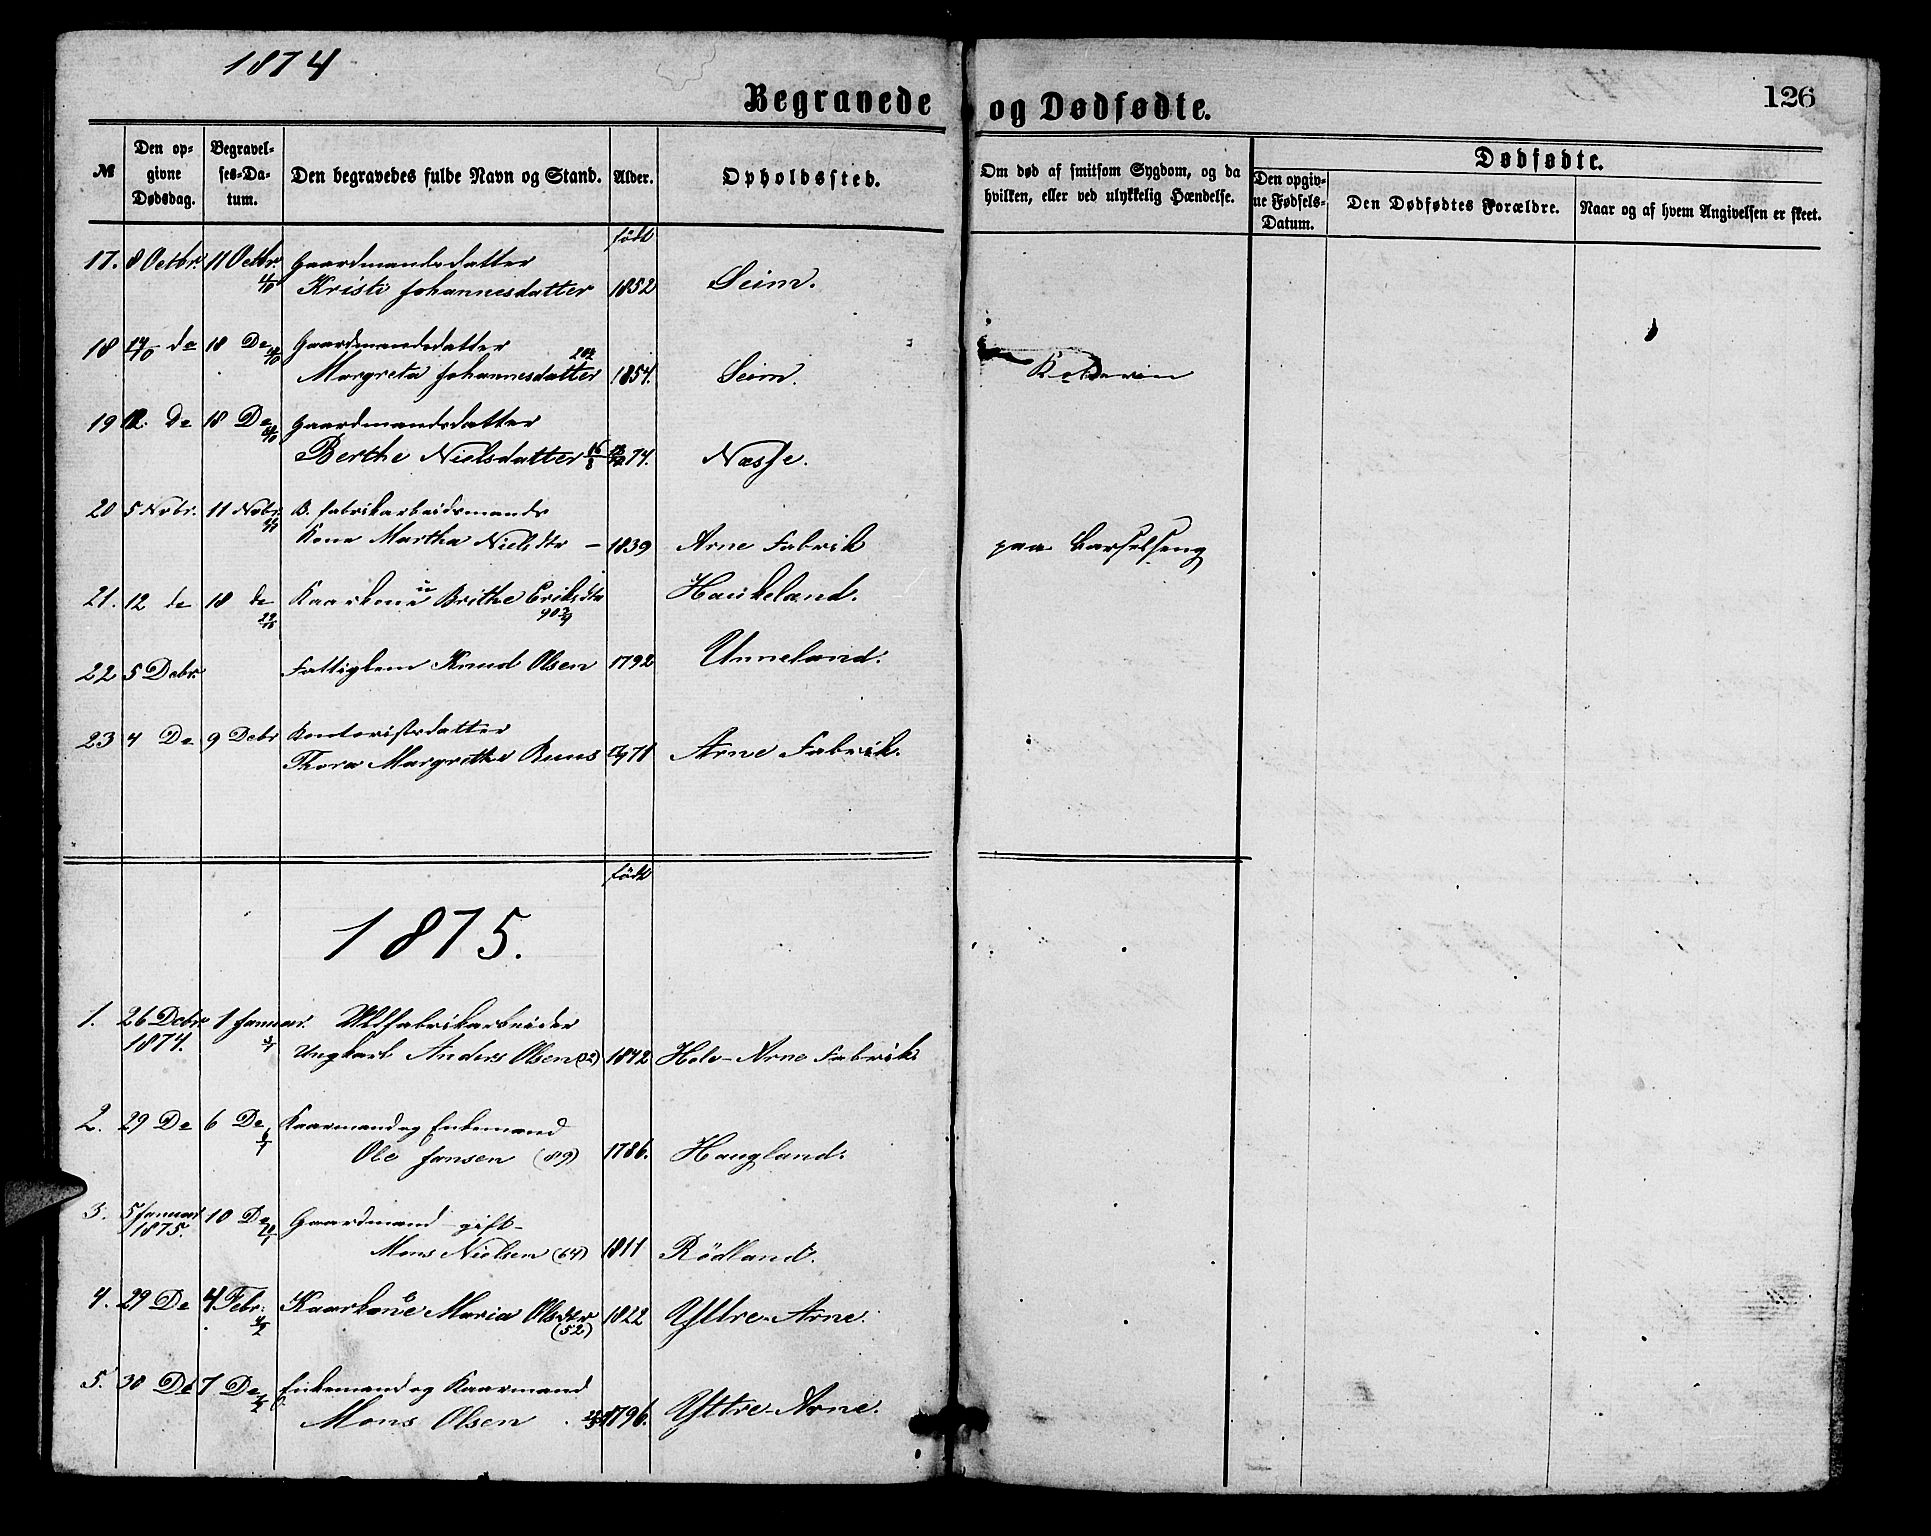 1874
Begravede og Dødfødte.
126
№
Den opgivne Dødsdag.
Begravelses-Datum.
Den begravedes fulde Navn og Stand.
Alder.
Opholdssted.
Om død af smitsom Sygdom, og da hvilken, eller ved ulykkelig Hændelse.
Dødfødte.
Den opgivne Fødsels-Datum.
Den Dødfødtes Forældre.
Naar og af hvem Angivelsen er skeet.
født
17. 8 Octbr. 11 Octbr. Gaardmandsdatter
Kristi Johannesdatter 1852 Seim.
18 14/10 do 18 Do Gaardmandsdatter
Margreta Johannesdatter 1854. Seim.
19 12. Do 18 Do Gaardmandsdatter
Berthe Nielsdatter 74. Næsse.
20 5 Nvbr. 11 Nvbr. B. Fabrikarbeidsmands
Kone Martha Nielsdtr – 1839 Arne Fabrik paa Barselseng
21. 12 do 18 do Kaarkone Brithe Eriksdtr Haukeland.
22 5 Debr. Fattiglem Knud Olsen 1792 Unneland.
23 4 Do 9 Debr Kontoristsdatter
Thora Margrethe 71 Arne Fabrik.
født
1875.
1. 26 Debr. 1 Januar. Uldfabrikarbeider
1874. Ungkarl Anders Olsen (32) 1842 Arne Fabrik
2. 29 Do 6 Do Kaarmand og Enkemand
Ole Jansen (89) 1786. Haugland.
3. 5 Januar 10 Do Gaardmand gift–
1875. Mons Nielsen (64) 1811 Rödland.
4. 29 Do 4 Febr. Kaarkone Maria Olsdtr 1822 Yttre-Arne.
(52)
5. 30 Do 7 Do Enkemand og Kaarmand
Mons Olsen 1796. Yttre-Arne.